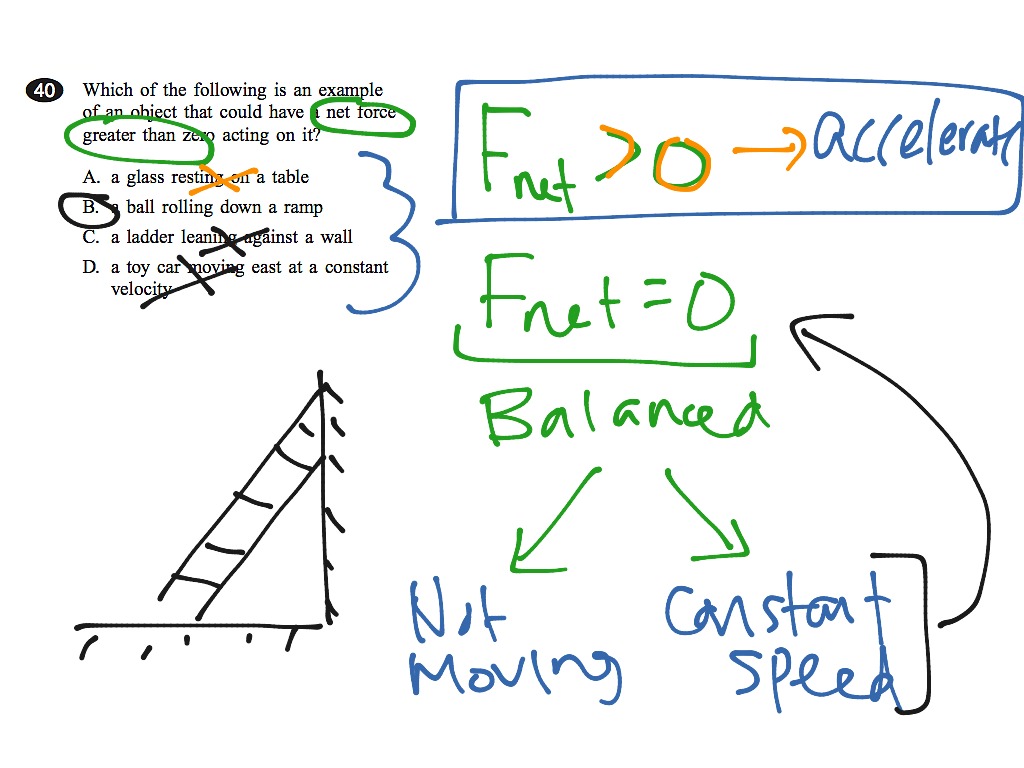 40 Which of the following is an example
of an object that could have a net force
greater than zero acting on it?
A. a glass resting on a table
B. a ball rolling down a ramp
C. a ladder leaning against a wall
D. a toy car moving east at a constant
velocity
Fnet > 0 → accelerate
Fnet = 0
Balanced
Not
Moving
Constant
Speed